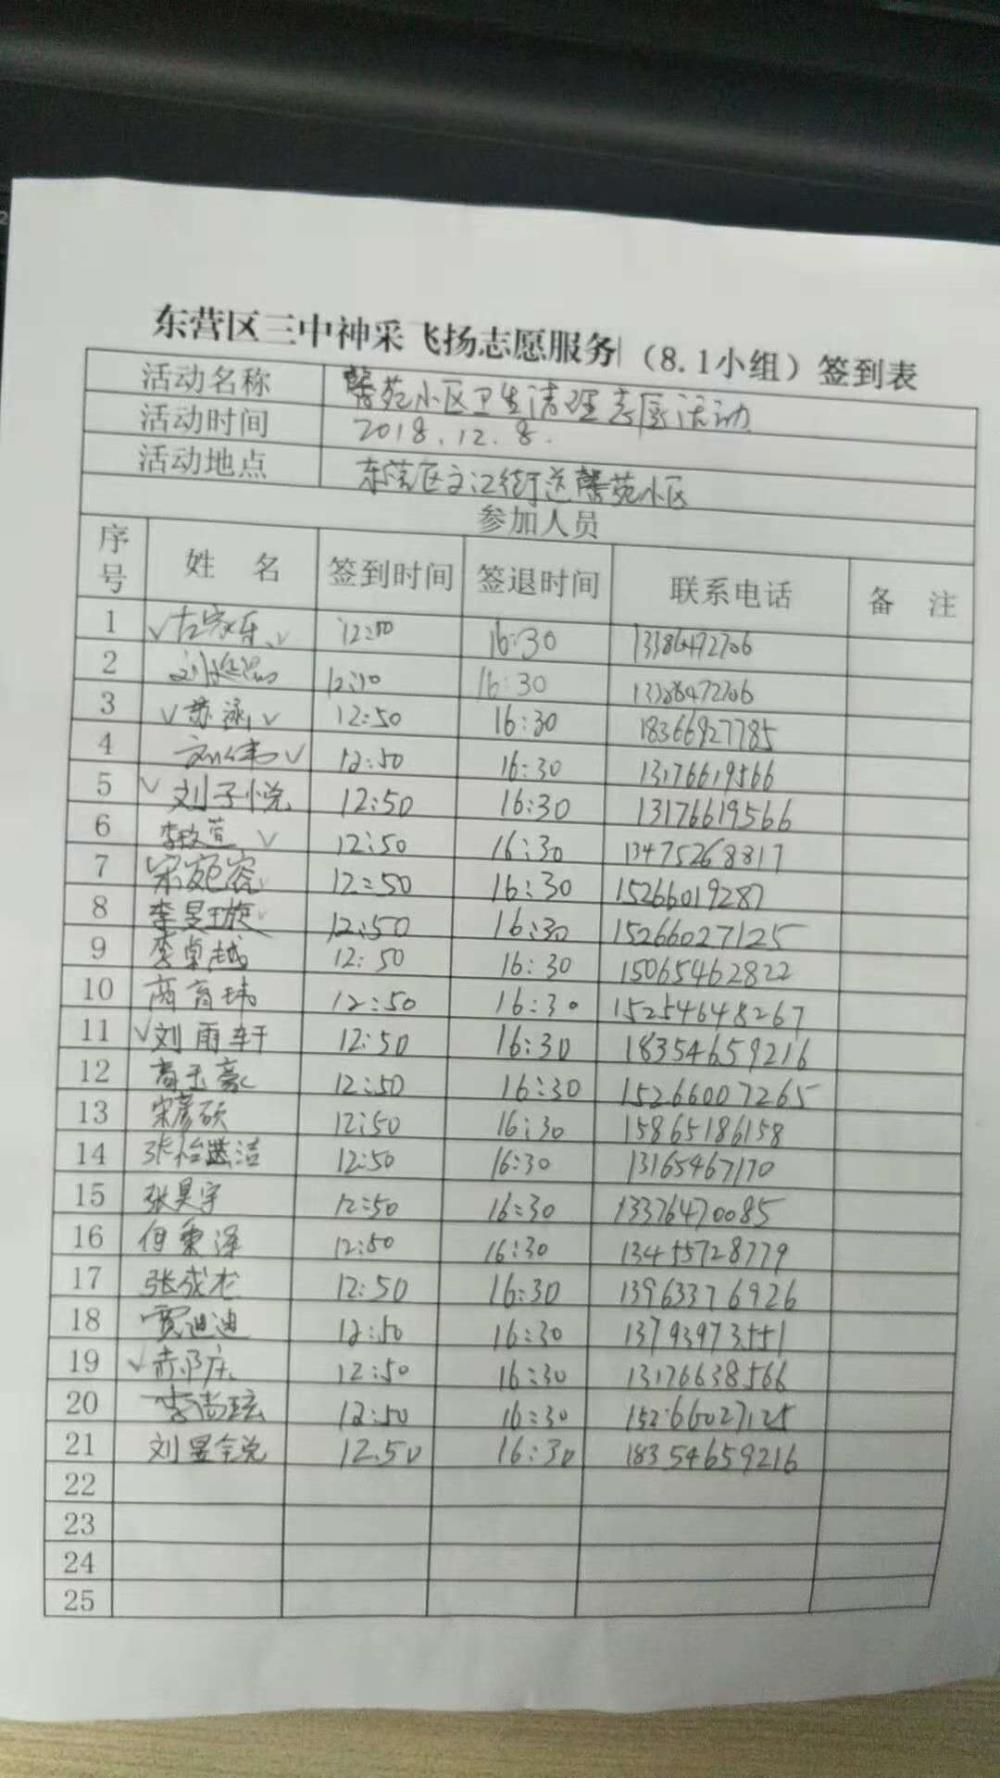 东营区三中神采飞扬志愿服务（8.1小组）签到表
活动名称 馨苑小区卫生清理志愿活动
活动时间 2018.12.8.
活动地点 东营区文汇街道馨苑小区
参加人员
序号 姓 名 签到时间 签退时间 联系电话 备 注
1 12:50 16:30
2 16:30
3 苏涵 12:50 16:30 18366927785
4 12:50 16:30 13176619566
5 刘子悦 12:50 16:30 13176619566
6 12:50 16:30 13475268817
7 12:50 16:30 15266019287
8 李昱璇 12:50 16:30 15266027125
9 李卓越 12:50 16:30 15065462822
10 商育玮 12:50 16:30 15254648267
11 刘雨轩 12:50 16:30 18354659216
12 12:50 16:30 15266007265
13 宋彦硕 12:50 16:30 15865186158
14 12:50 16:30 13165467170
15 张昊宇 12:50 16:30 13376470085
16 12:50 16:30 13455728779
17 张成龙 12:50 16:30 13963376926
18 贾迪迪 12:50 16:30
19 12:50 16:30 13176638566
20 12:50 16:30 15266027125
21 12:50 16:30 18354659216
22
23
24
25